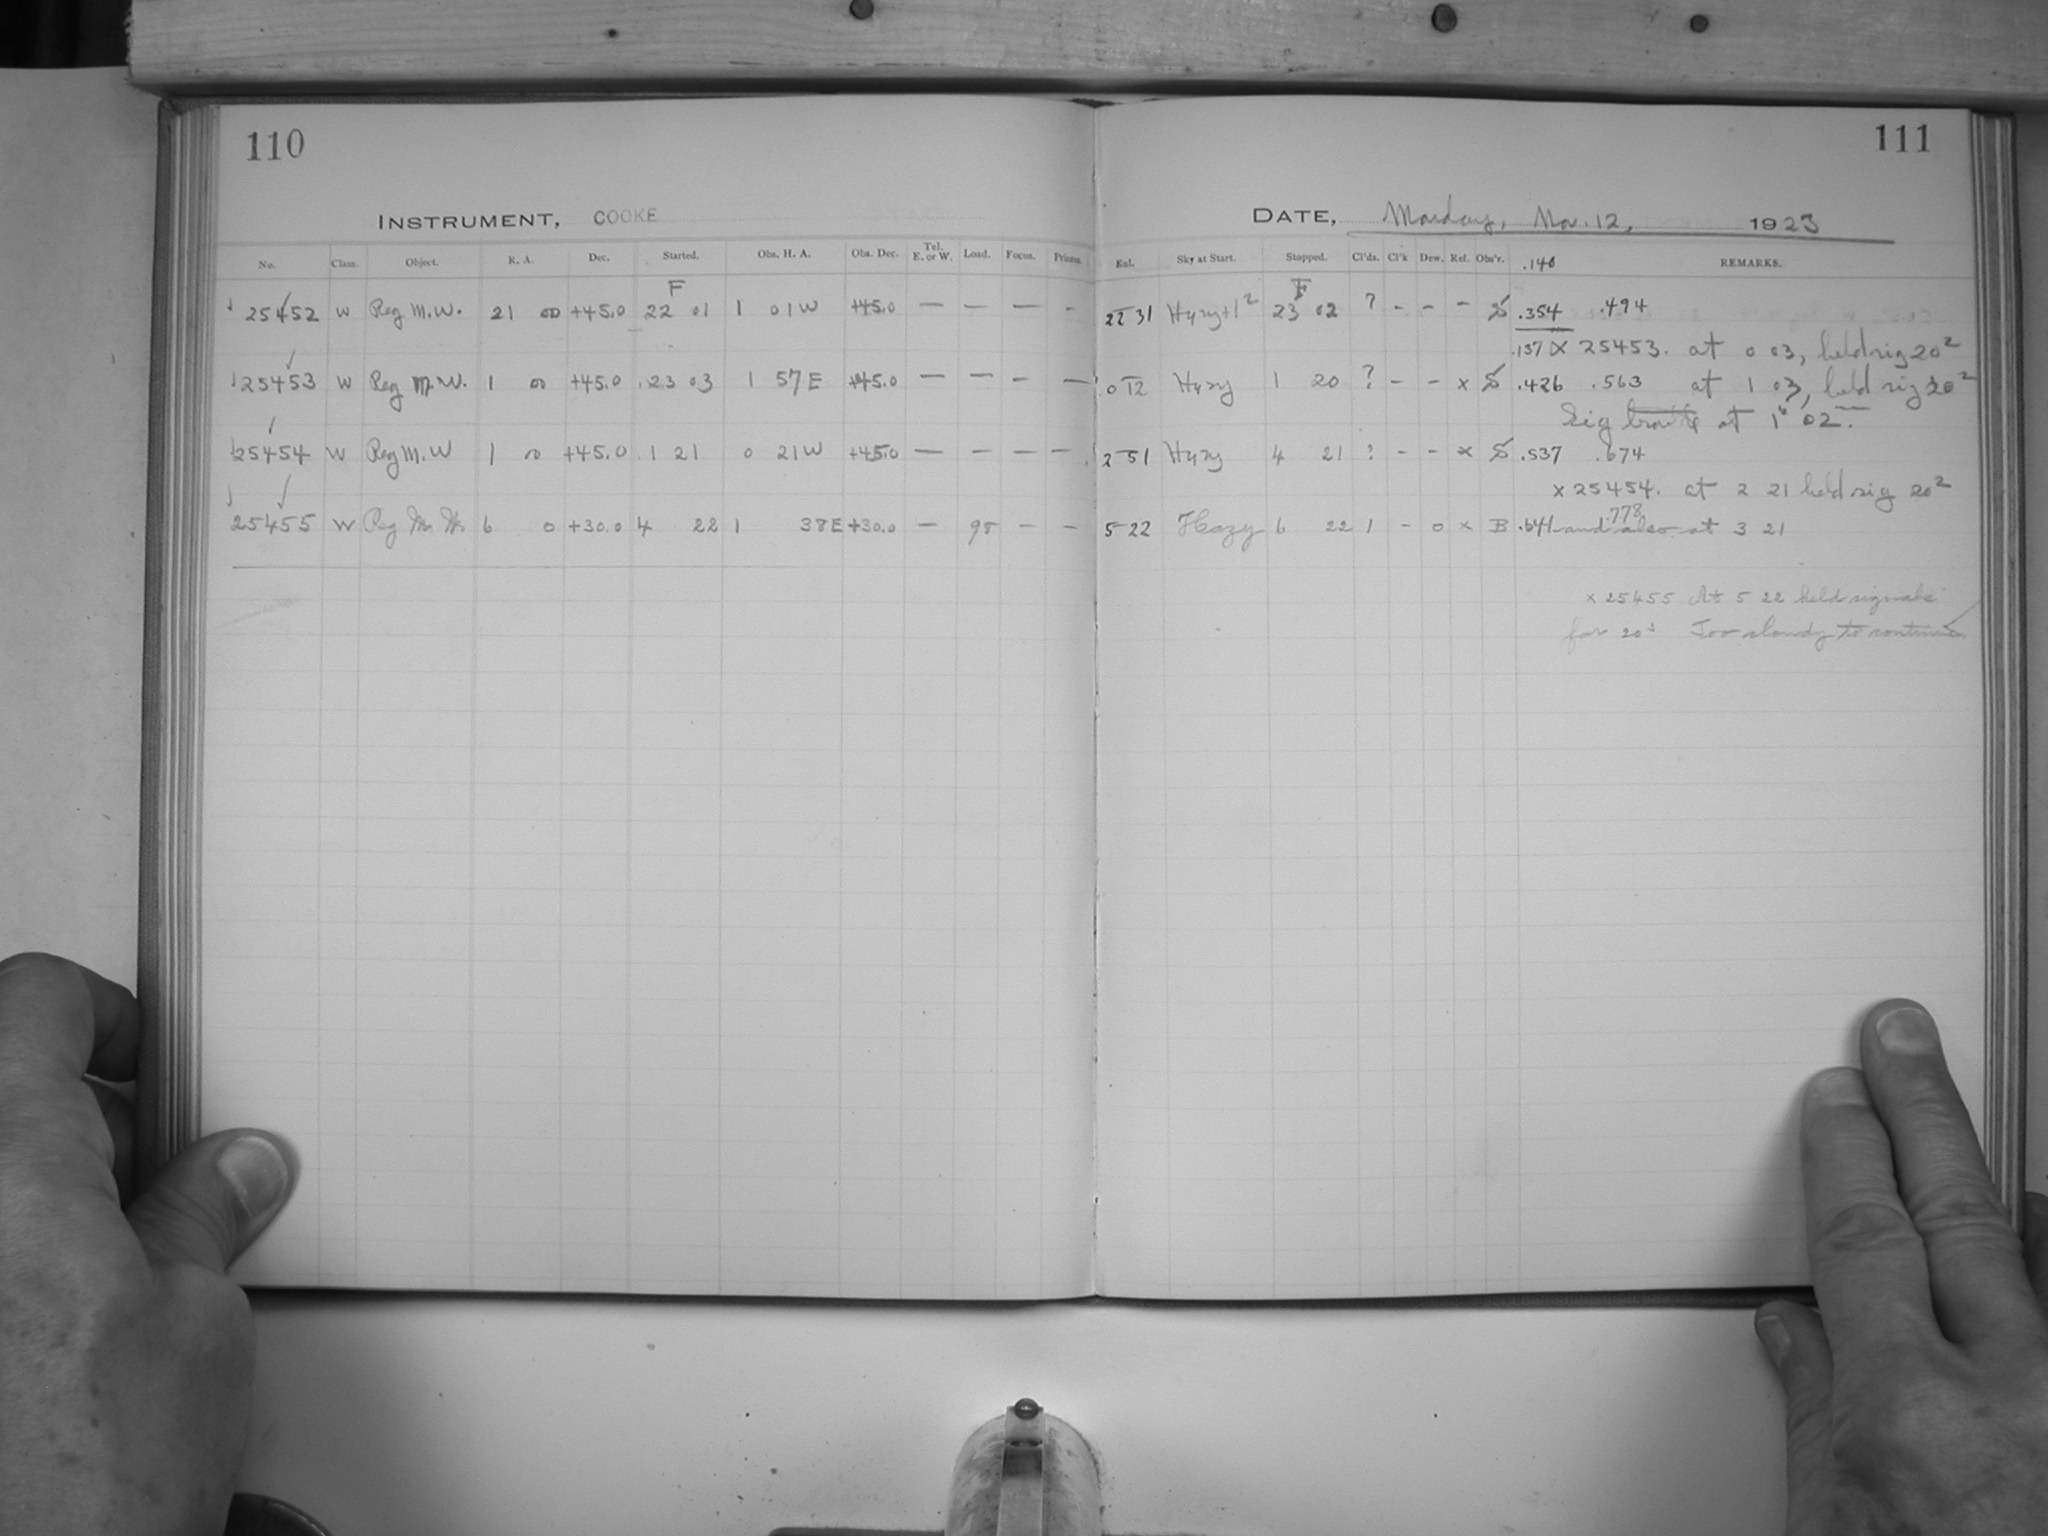 110
INSTRUMENT, COOKE
No. Class. Object. R. A. Dec. Started. Obs. H. A. Obs. Dec. Tel. E. or W. Load. Focus. Prisms.
F
25452 W Reg M.W. 21 00 +45.0 22 01 1 01 W +45.0 — — — -
25453 W Reg M.W. 1 00 +45.0 23 03 1 57 E +45.0 — — - —
25454 W Reg M.W 1 00 +45.0 1 21 0 21 W +45.0 — — — —
25455 W Reg M. W. 6 0 +30.0 4 22 1 38 E +30.0 — 98 - -
111
DATE, Monday, Nov. 12, 1923
Eal. Sky at Start. Stopped. Cl'ds. Cl'k Dew. Ref. Obs'r. .140 REMARKS.
F
22 31 Hazy+1² 23 02 ? - - - S .354 .494
.137 X 25453. at 0 03, held sig 20²
0 12 Hazy 1 20 ? - - x S .426 .563 at 1 03, held sig 20²
Sig at 1ʰ 02.
2 51 Hazy 4 21 ? - - x S .537 .674
x 25454. at 2 21 held sig 20²
5 22 Hazy 6 22 1 - 0 x B .641 .778 and also at 3 21
x 25455 At 5 22 held signals
for 20ˢ Too cloudy to continue